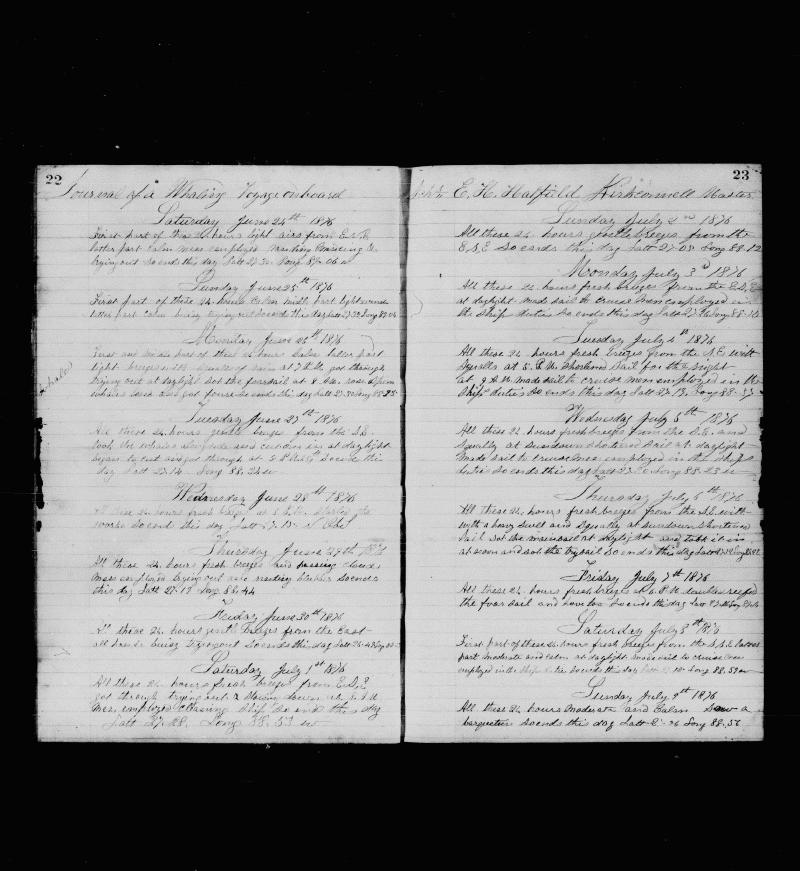 22
Journal of a Whaling Voyage onboard
Saturday June 24th 1876
First part of these 24 hours light airs from E.S.E
latter part calm men employed
trying out so ends this day Latt 27.30 Long 87.06 w
Sunday June 25th 1876
First part of these 24 hours calm middle part light winds
latter part calm busy trying out so ends this day Latt 27.32 Long 87.06
Monday June 26th 1876
First and middle part of these 24 hours calm latter part
light breeze with squalls of rain at 7 A.M. got through
trying out at daylight set the foresail at 8 A.M. rose Sperm
whales and got four so ends this day Latt 27.30 Long 88.25
Tuesday June 27th 1876
All these 24 hours gentle breeze from the S.E.
took the whales alongside and cutting in at daylight
began to cut and got through at so ends this
day Latt 27.14 Long 88.24 w
Wednesday June 28th 1876
All these 24 hours fresh breeze at started the
works so ends this day Latt 27.15 Obs
Thursday June 29th 1876
All these 24 hours fresh breeze and passing clouds
men employed trying out and blubber so ends
this day Latt 27.17 Long 88.44
Friday June 30th 1876
All these 24 hours gentle breezes from the East
all hands busy trying out so ends this day Latt
Saturday July 1st 1876
All these 24 hours fresh breeze from E.S.E
got through trying out &
men employed cleaning ship so ends this day
Latt 27.28 Long 88.53 w
23
E. H. Hatfield Kirkconnell Master
Sunday July 2nd 1876
All these 24 hours gentle breezes from the
E.S.E so ends this day Latt 27.05 Long 88.12
Monday July 3d 1876
All these 24 hours fresh breezes from the E.S.E
at daylight made sail to cruise men employed in
the Ships duties so ends this day Latt 27.16 Long 88.10
Tuesday July 4th 1876
All these 24 hours fresh breezes from the S.E with
squalls at 5 P.M. Shortend Sail for the night
at 4 A.M. made sail to cruise men employed in the
Ships duties so ends this day Latt 27.13 Long 88.33
Wednesday July 5th 1876
All these 24 hours fresh breezes from the S.E. and
squally at sundown shortend sail at daylight
made sail to cruise men employed in the Ships
duties so ends this day Latt 27.20 Long 88.23 w
Thursday July 6th 1876
All these 24 hours fresh breezes from the S.E with
with a heavy swell and squally at sundown shortend
sail set the mainsail at daylight and took it in
at noon and set the trysail so ends this day Latt
Friday July 7th 1876
All these 24 hours fresh breezes at 6 P.M. double reefed
the four sail and hove too so ends this day Latt
Saturday July 8th 1876
First part of these 24 hours fresh breezes from the S.S.E latter
part moderate and calm at daylight made sail to cruise men
employed in the Ships duties so ends this day Latt Long 88.59 w
Sunday July 9th 1876
All these 24 hours moderate and Calm Saw a
barquentine so ends this day Latt 27.26 Long 88.56